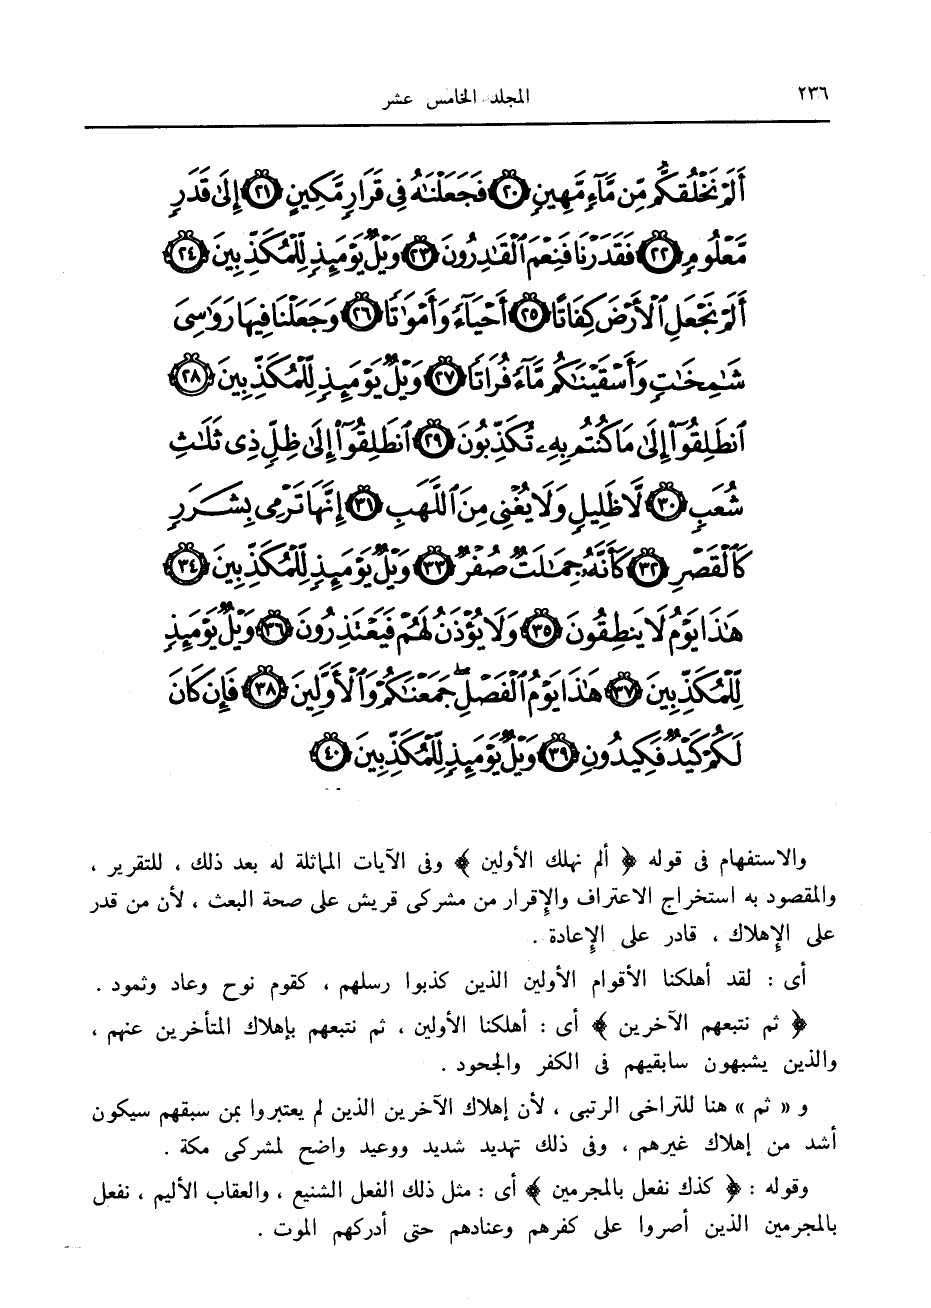 ٢٣٦ المجلد الخامس عشر
أَلَمْ نَخْلُقكُّم مِّن مَّآءٍ مَّهِينٍ ﴿٢٠﴾ فَجَعَلْنَٰهُ فِى قَرَارٍ مَّكِينٍ ﴿٢١﴾ إِلَىٰ قَدَرٍ
مَّعْلُومٍ ﴿٢٢﴾ فَقَدَرْنَا فَنِعْمَ ٱلْقَٰدِرُونَ ﴿٢٣﴾ وَيْلٌ يَوْمَئِذٍ لِّلْمُكَذِّبِينَ ﴿٢٤﴾
أَلَمْ نَجْعَلِ ٱلْأَرْضَ كِفَاتًا ﴿٢٥﴾ أَحْيَآءً وَأَمْوَٰتًا ﴿٢٦﴾ وَجَعَلْنَا فِيهَا رَوَٰسِىَ
شَٰمِخَٰتٍ وَأَسْقَيْنَٰكُم مَّآءً فُرَاتًا ﴿٢٧﴾ وَيْلٌ يَوْمَئِذٍ لِّلْمُكَذِّبِينَ ﴿٢٨﴾
ٱنطَلِقُوٓا۟ إِلَىٰ مَا كُنتُم بِهِۦ تُكَذِّبُونَ ﴿٢٩﴾ ٱنطَلِقُوٓا۟ إِلَىٰ ظِلٍّ ذِى ثَلَٰثِ
شُعَبٍ ﴿٣٠﴾ لَّا ظَلِيلٍ وَلَا يُغْنِى مِنَ ٱللَّهَبِ ﴿٣١﴾ إِنَّهَا تَرْمِى بِشَرَرٍ
كَٱلْقَصْرِ ﴿٣٢﴾ كَأَنَّهُۥ جِمَٰلَتٌ صُفْرٌ ﴿٣٣﴾ وَيْلٌ يَوْمَئِذٍ لِّلْمُكَذِّبِينَ ﴿٣٤﴾
هَٰذَا يَوْمُ لَا يَنطِقُونَ ﴿٣٥﴾ وَلَا يُؤْذَنُ لَهُمْ فَيَعْتَذِرُونَ ﴿٣٦﴾ وَيْلٌ يَوْمَئِذٍ
لِّلْمُكَذِّبِينَ ﴿٣٧﴾ هَٰذَا يَوْمُ ٱلْفَصْلِ ۖ جَمَعْنَٰكُمْ وَٱلْأَوَّلِينَ ﴿٣٨﴾ فَإِن كَانَ
لَكُمْ كَيْدٌ فَكِيدُونِ ﴿٣٩﴾ وَيْلٌ يَوْمَئِذٍ لِّلْمُكَذِّبِينَ ﴿٤٠﴾
والاستفهام فى قوله ﴿ ألم نهلك الأولين ﴾ وفى الآيات المماثلة له بعد ذلك ، للتقرير ،
والمقصود به استخراج الاعتراف والإقرار من مشركى قريش على صحة البعث ، لأن من قدر
على الإهلاك ، قادر على الإعادة .
أى : لقد أهلكنا الأقوام الأولين الذين كذبوا رسلهم ، كقوم نوح وعاد وثمود .
﴿ ثم نتبعهم الآخرين ﴾ أى : أهلكنا الأولين ، ثم نتبعهم بإهلاك المتأخرين عنهم ،
والذين يشبهون سابقيهم فى الكفر والجحود .
و « ثم » هنا للتراخى الرتبى ، لأن إهلاك الآخرين الذين لم يعتبروا بمن سبقهم سيكون
أشد من إهلاك غيرهم ، وفى ذلك تهديد شديد ووعيد واضح لمشركى مكة .
وقوله : ﴿ كذك نفعل بالمجرمين ﴾ أى : مثل ذلك الفعل الشنيع ، والعقاب الأليم ، نفعل
بالمجرمين الذين أصروا على كفرهم وعنادهم حتى أدركهم الموت .